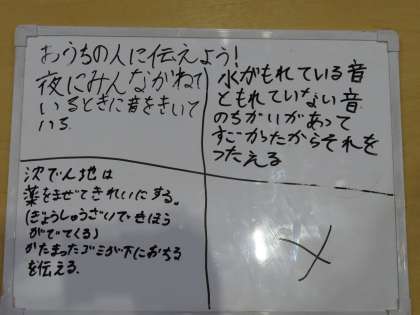 おうちの人に伝えよう!
夜にみんながねて
いるときに音をきいて
いる
水がもれている音
ともれていない音
のちがいがあって
すごかったからそれを
つたえる
次でん地は
薬をまぜてきれいにする。
(ぎょうしゅうざいで、きほう
がでてくる)
かたまったゴミが下におちる
を伝える。